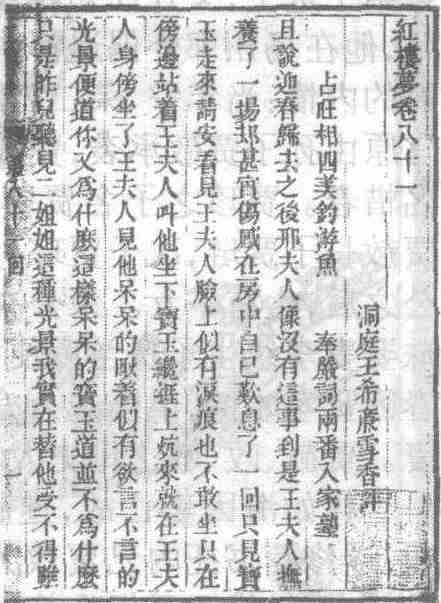 紅樓夢卷八十一
洞庭王希廉雪香評
占旺相四美釣游魚　奉嚴詞兩番入家塾
且說迎春歸去之後邢夫人像沒有這事到是王夫人撫
養了一場却甚實傷感在房中自己歎息了一回只見寶
玉走來請安看見王夫人臉上似有淚痕也不敢坐只在
傍邊站着王夫人叫他坐下寶玉纔捱上炕來就在王夫
人身傍坐了王夫人見他呆呆的瞅着似有欲言不言的
光景便道你又爲什麼這樣呆呆的寶玉道並不爲什麼
只是昨兒聽見二姐姐這種光景我實在替他受不得雖